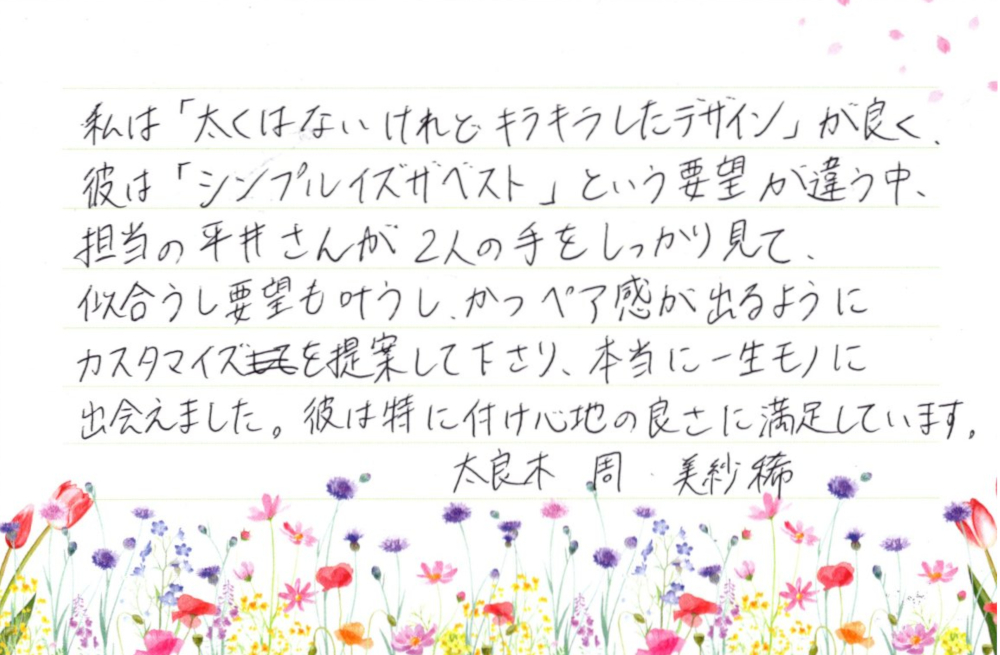 私は「太くはないけれどキラキラしたデザイン」が良く、
彼は「シンプルイズザベスト」という要望が違う中、
担当の平井さんが2人の手をしっかり見て、
似合うし要望も叶うし、かつペア感が出るように
カスタマイズを提案して下さり、本当に一生モノに
出会えました。彼は特に付け心地の良さに満足しています。
太良木 周・美紗稀